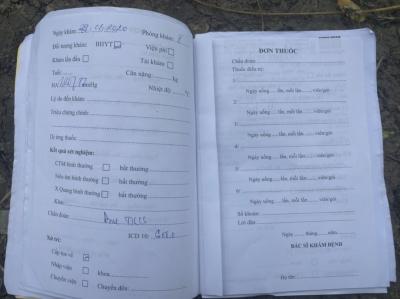 Ngày khám: Phòng khám:
Đối tượng khám: BHYT Viện phí
Khám lần đầu Tái khám
Tuổi: Cân nặng kg
HA mmHg Nhiệt độ °C
Lý do đến khám:
Triệu chứng chính:
Dị ứng thuốc:
Kết quả xét nghiệm:
CTM bình thường bất thường
Siêu âm bình thường bất thường
X.Quang bình thường bất thường
Khác:
Chẩn đoán:
ICD 10:
Xử trí:
Cấp toa về
Nhập viện khoa
Chuyển viện Chuyển đến:
ĐƠN THUỐC
Chẩn đoán:
Thuốc điều trị:
1/
Ngày uống lần, mỗi lần viên/gói
2/
Ngày uống lần, mỗi lần viên/gói
3/
Ngày uống lần, mỗi lần viên/gói
4/
Ngày uống lần, mỗi lần viên/gói
5/
Ngày uống lần, mỗi lần viên/gói
6/
Ngày uống lần, mỗi lần viên/gói
Số khoản:
Lời dặn:
Ngày tháng năm
BÁC SĨ KHÁM BỆNH
Họ tên: